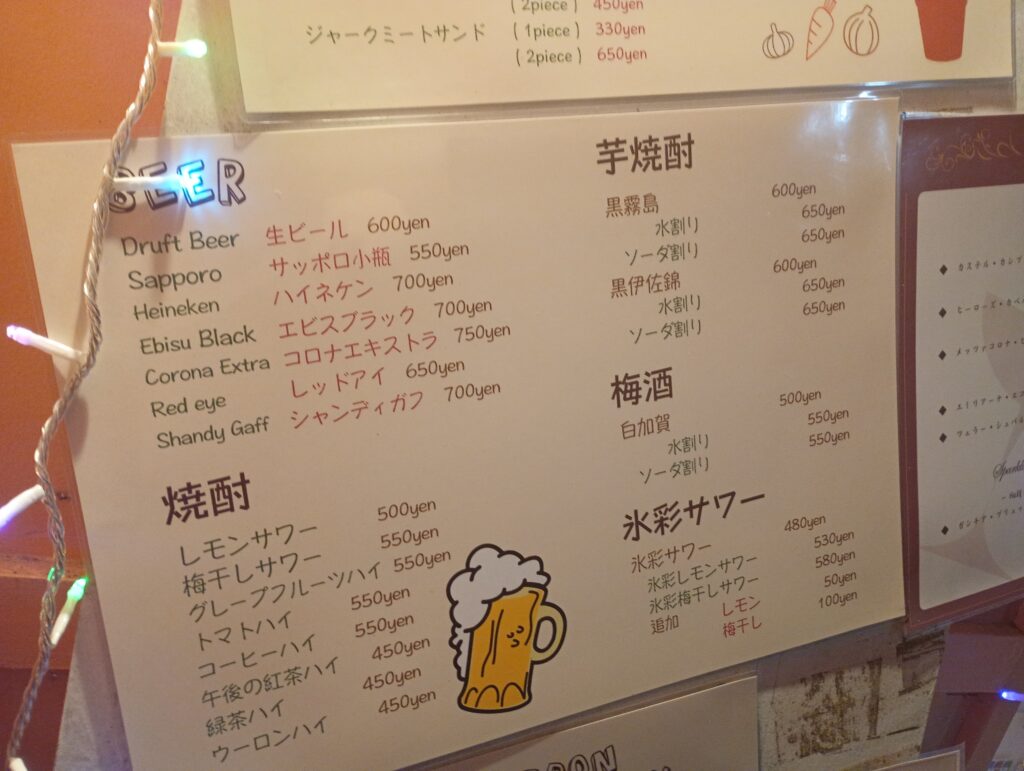 (2piece) 450yen
ジャークミートサンド (1piece) 330yen
(2piece) 650yen
BEER
Druft Beer 生ビール 600yen
Sapporo サッポロ小瓶 550yen
Heineken ハイネケン 700yen
Ebisu Black エビスブラック 700yen
Corona Extra コロナエキストラ 750yen
Red eye レッドアイ 650yen
Shandy Gaff シャンディガフ 700yen
焼酎
レモンサワー 500yen
梅干しサワー 550yen
グレープフルーツハイ 550yen
トマトハイ 550yen
コーヒーハイ 550yen
午後の紅茶ハイ 450yen
緑茶ハイ 450yen
ウーロンハイ 450yen
芋焼酎
黒霧島 600yen
水割り 650yen
ソーダ割り 650yen
黒伊佐錦 600yen
水割り 650yen
ソーダ割り 650yen
梅酒
白加賀 500yen
水割り 550yen
ソーダ割り 550yen
氷彩サワー
氷彩サワー 480yen
氷彩レモンサワー 530yen
氷彩梅干しサワー 580yen
追加 レモン 50yen
梅干し 100yen